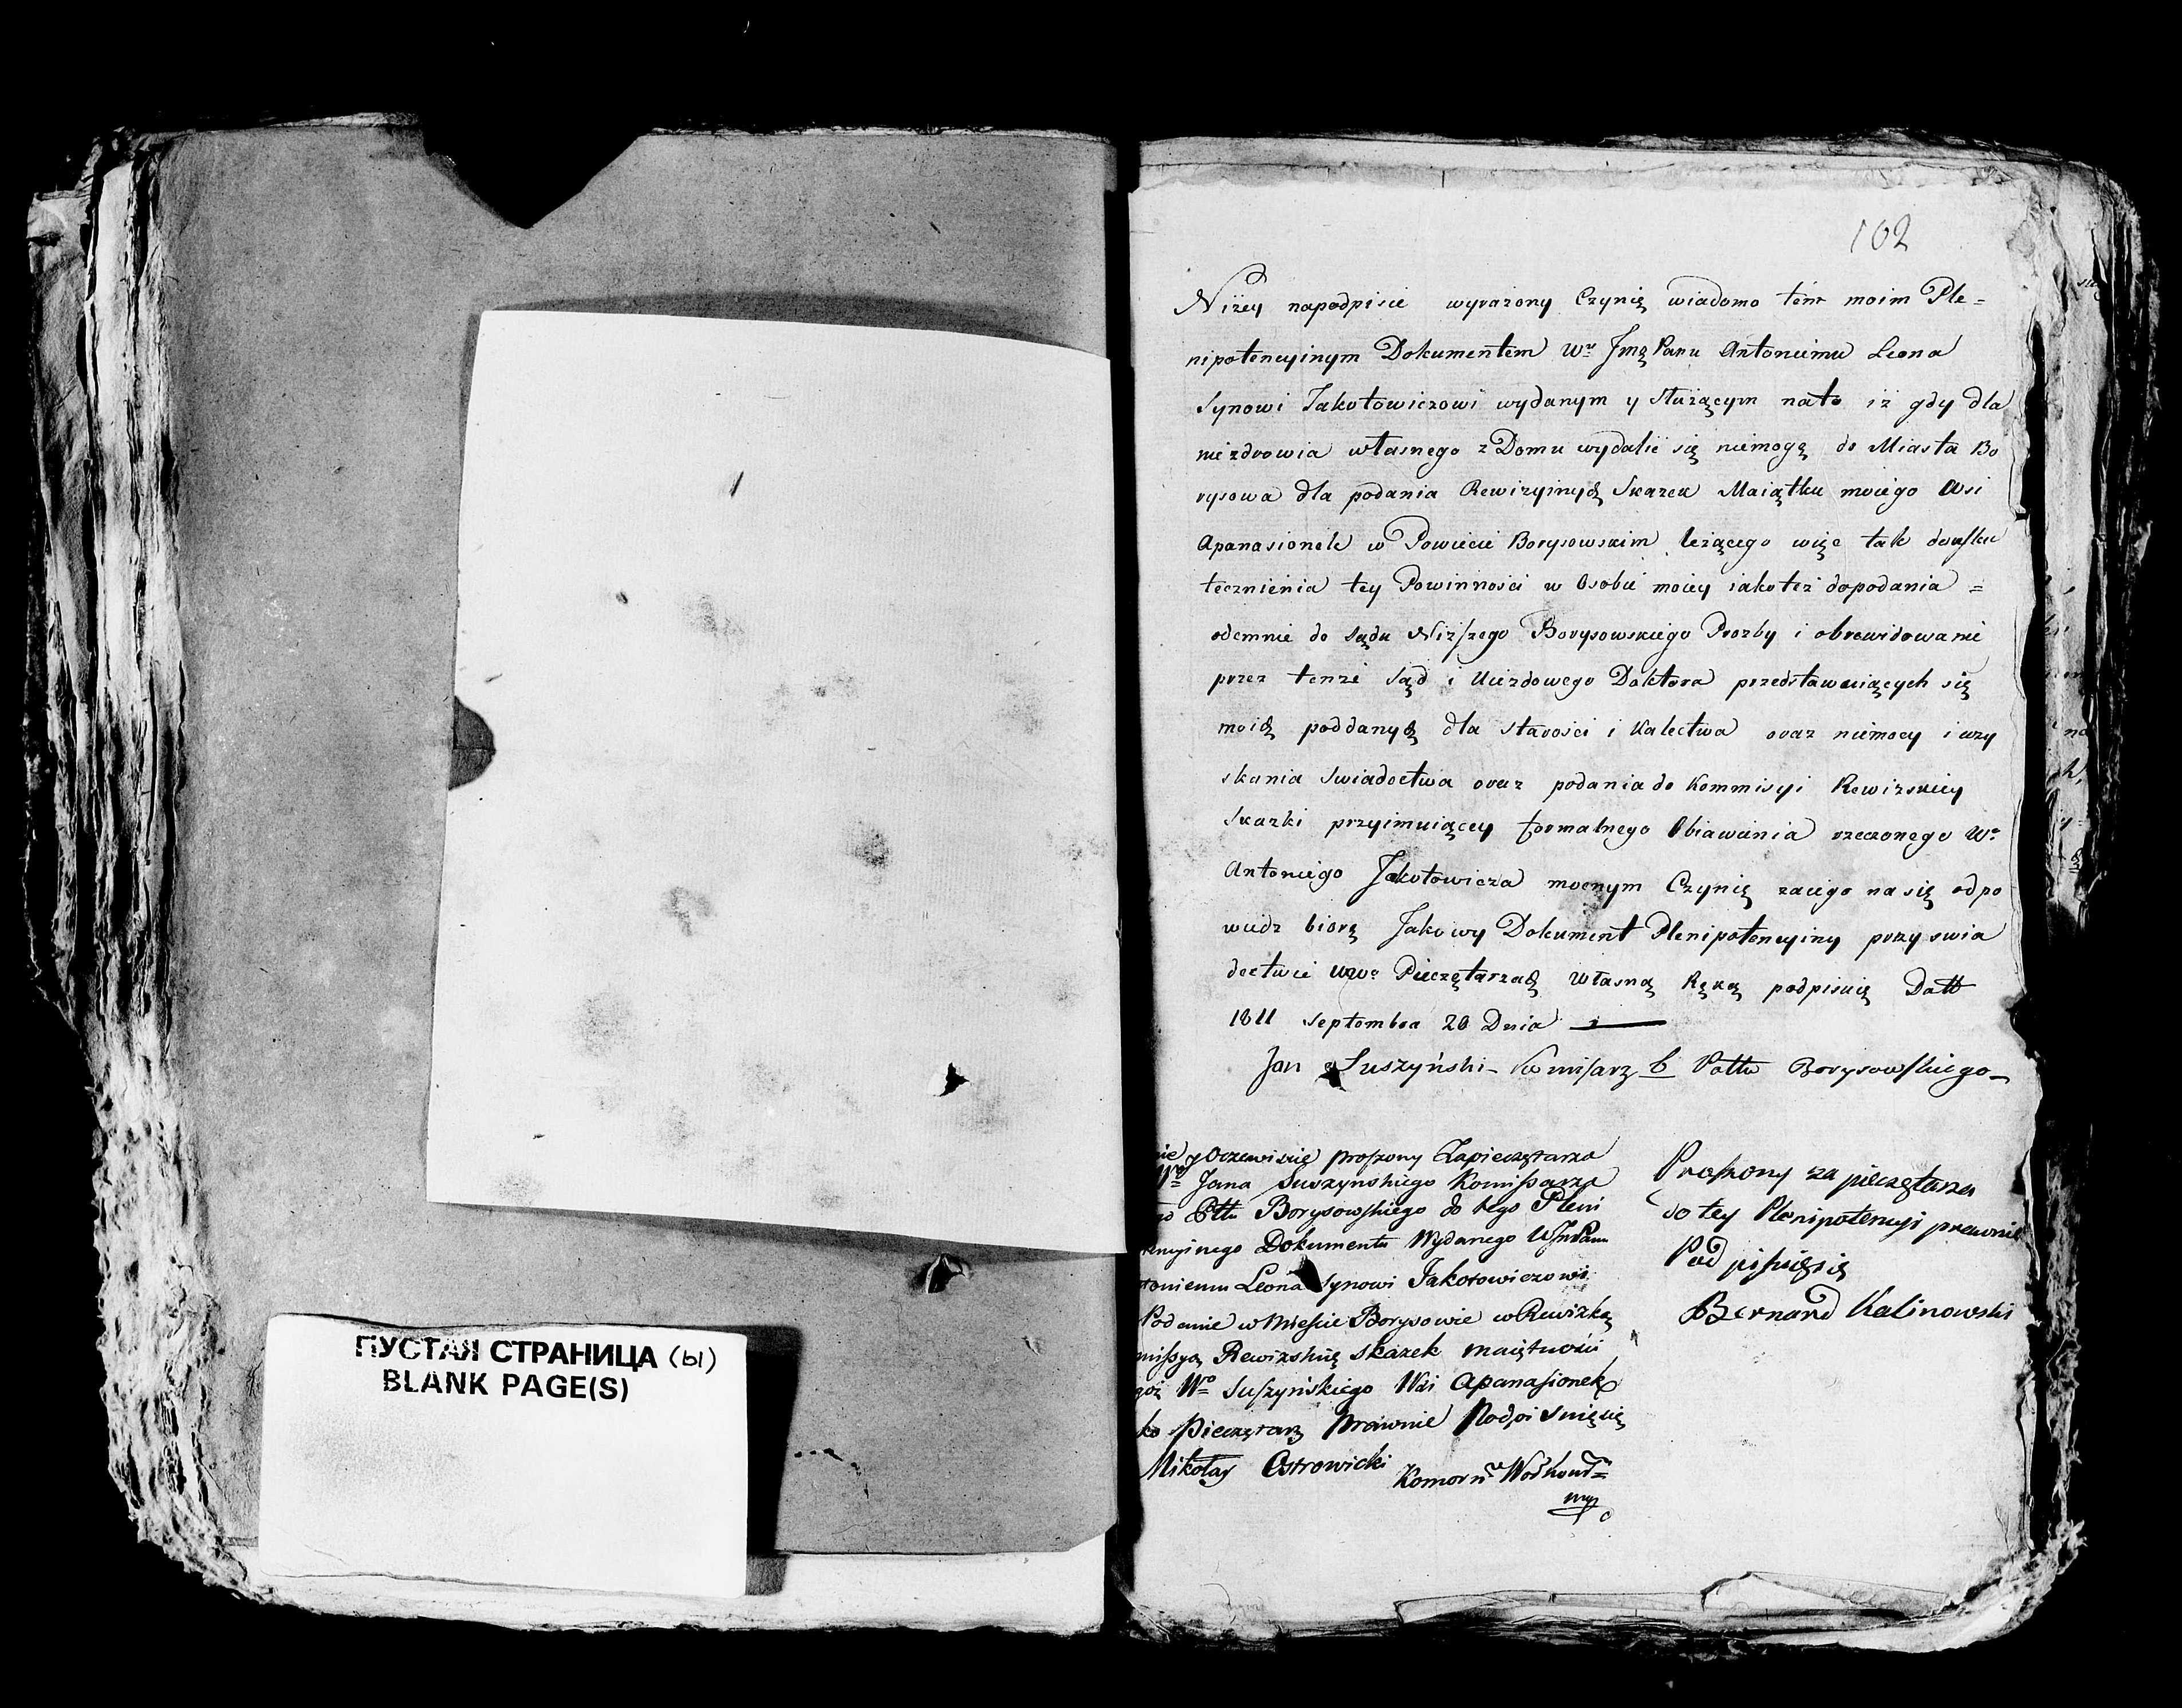 ПУСТАЯ СТРАНИЦА (ы)
BLANK PAGE(S)
102
Niżey napodpisie wyrażony Czynię wiadomo tém moim Ple=
nipotencyinym Dokumentem Wu Jmę Panu Antoniemu Leona
Synowi Jakotowiczowi wydanym y służącym nato iż gdy dla
niezdrowia własnego z Domu wydalić się niemogę do Miasta Bo
rysowa dla podania Rewizyinych Skazek Maiątku moiego Wsi
Apanasionek w Powiecie Borysowskim leżącego więc tak dousku
tecznienia tey Powinności w Osobie moiey iakoteż dopodania =
odemnie do Sądu Niższego Borysowskiego Prozby i obrewidowanie
przez tenże Sąd i Uiezdowego Doktora przedstawuiących się
moich poddanych dla starości i Kalectwa oraz niemocy i uzy
skania Swiadectwa oraz podania do Kommisyi Rewizskiey
Skazki przyimuiącey formalnego Obiawienia rzeczonego Wo
Antoniego Jakotowicza mocnym Czynię zaiego na się odpo
wiedz biorę Jakowy Dokument Plenipotencyiny przy swia
dectwie WWo Pieczętarzach Własną Ręką podpisuię Datt
1811 Septembra 20 Dnia
Jan Suszyński Komisarz b Pottu Borysowskiego
nie y Oczewiscie proszony Zapieczętarza
Wo Jana Suszynskiego Komissarza
Pttu Borysowskiego do tego Pleni
encyinego Dokumentu Wydanego WJmPanu
toniemu Leona Synowi Jakotowiczowi
Podanie w Mieście Borysowie w Rewizką
missyą Rewizską skazek maiętności
goż Wo Suszyńskiego Wsi Apanasionek
ko Pieczętarz Prawnie Podpisuięsię
Mikołay Ostrowicki Komorn
mp
Proszony za pieczętarza
do tey Plenipotencyi prawnie
Podpisuięsię
Bernard Kalinowski